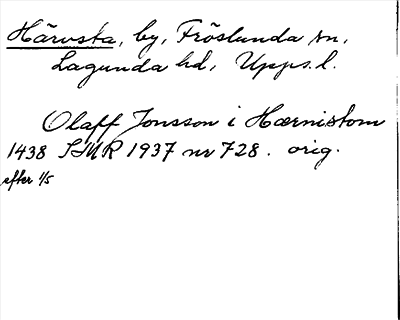 Härvsta, by, Fröslunda sn,
Lagunda hd, Upps. l.
Olaff Jonsson i Hærnistom
1438 SMR 1937 nr 728. orig.
efter 1/5